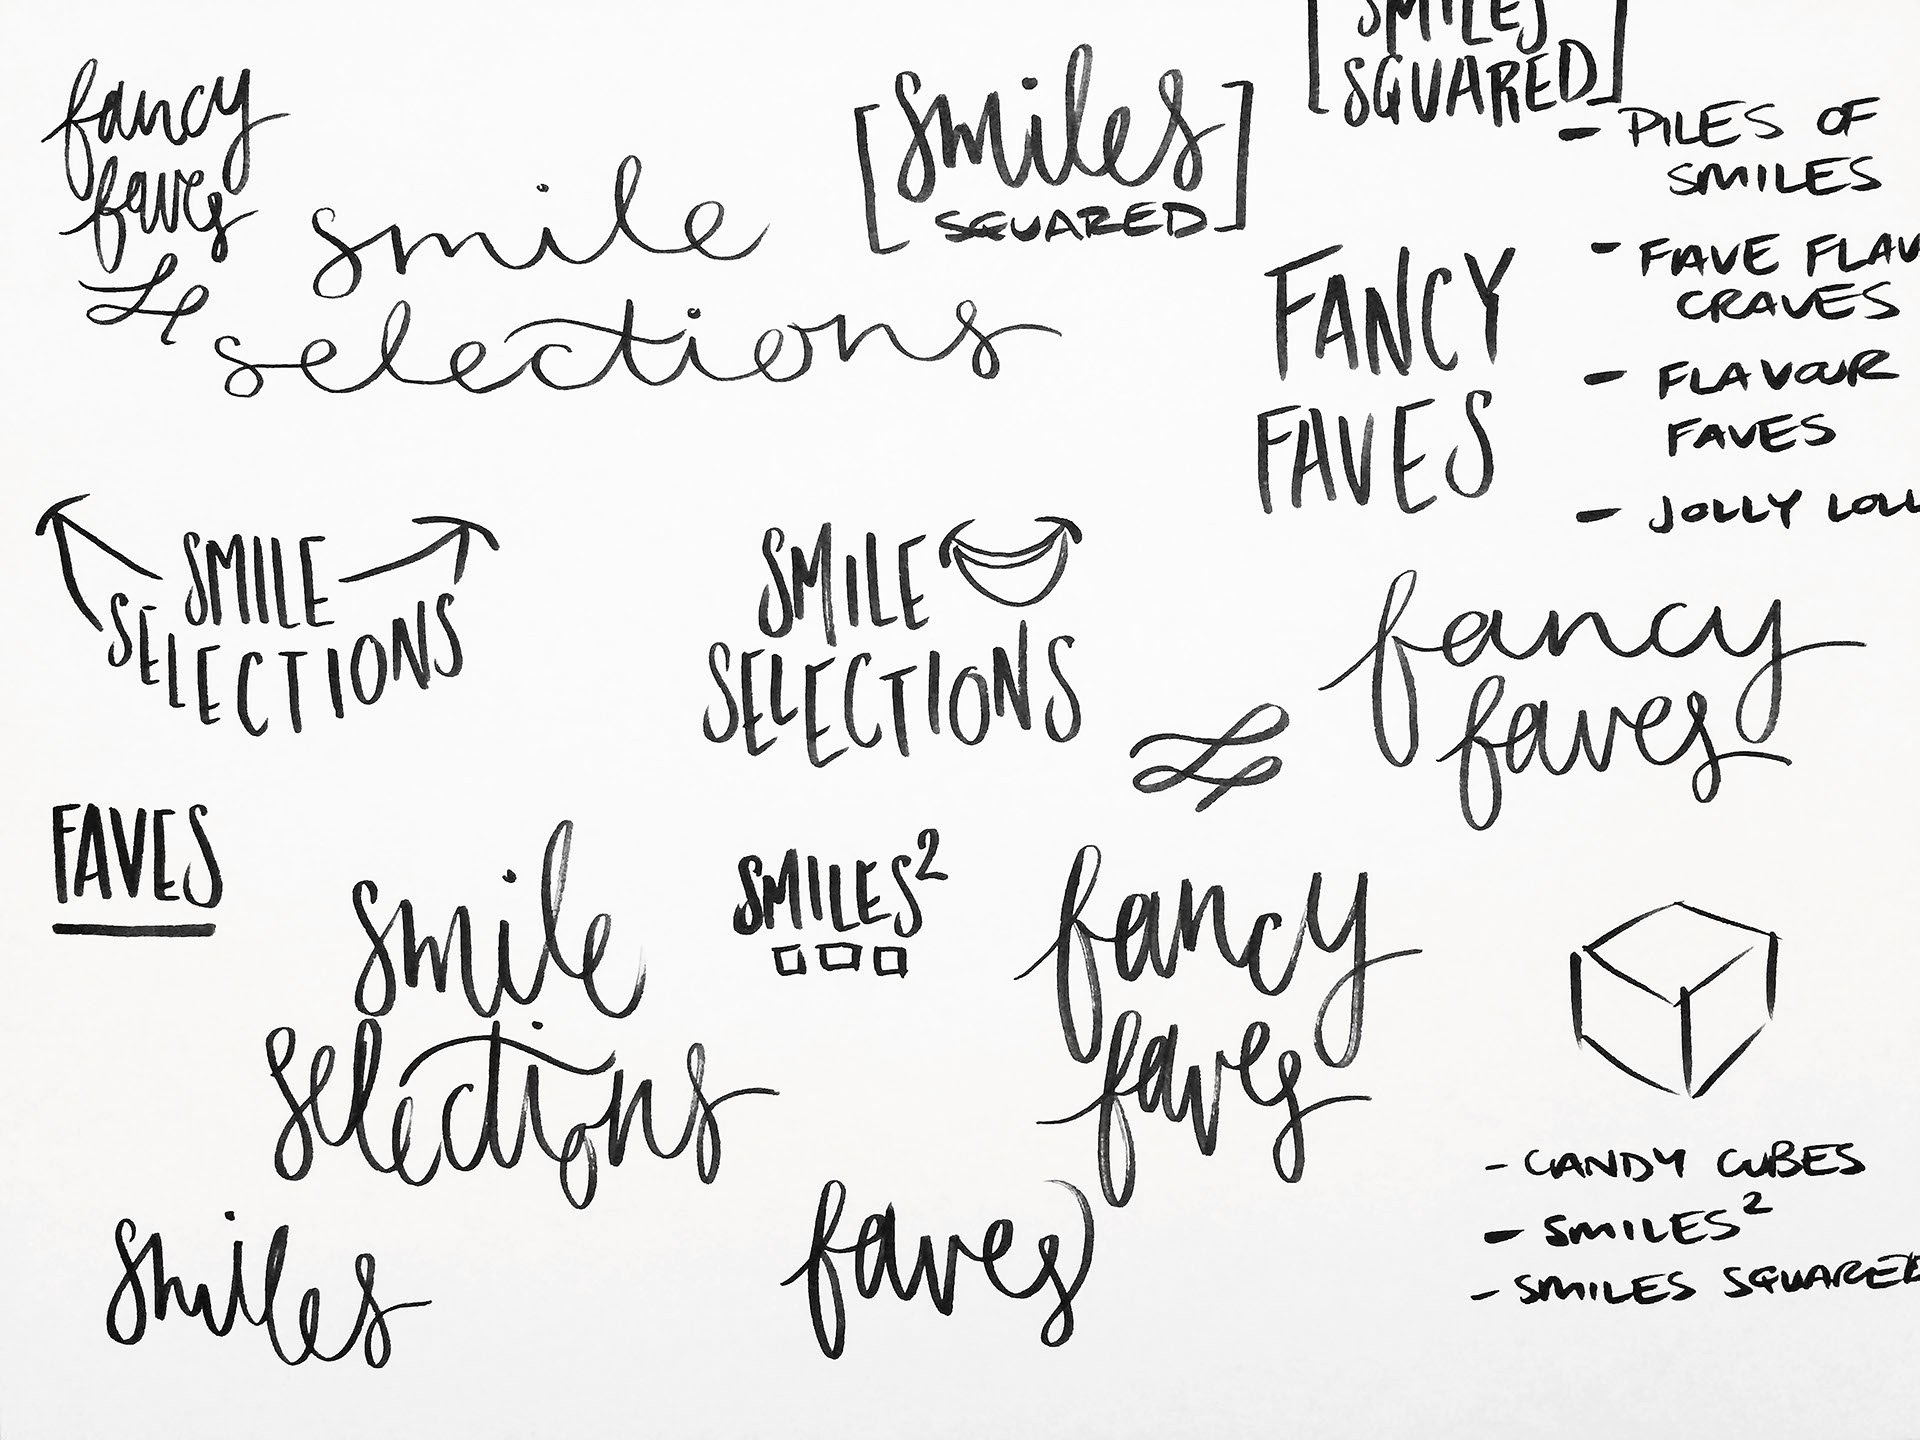 fancy
faves
smile
selections
[smiles
SQUARED]
SMILES
SQUARED]
- PILES OF
SMILES
- FAVE FLAV
CRAVES
- FLAVOUR
FAVES
- JOLLY LOLL
FANCY
FAVES
SMILE
SELECTIONS
SMILE
SELECTIONS
fancy
faves
FAVES
smile
selections
SMILES²
fancy
faves
smiles
faves
- CANDY CUBES
- SMILES²
- SMILES SQUARED